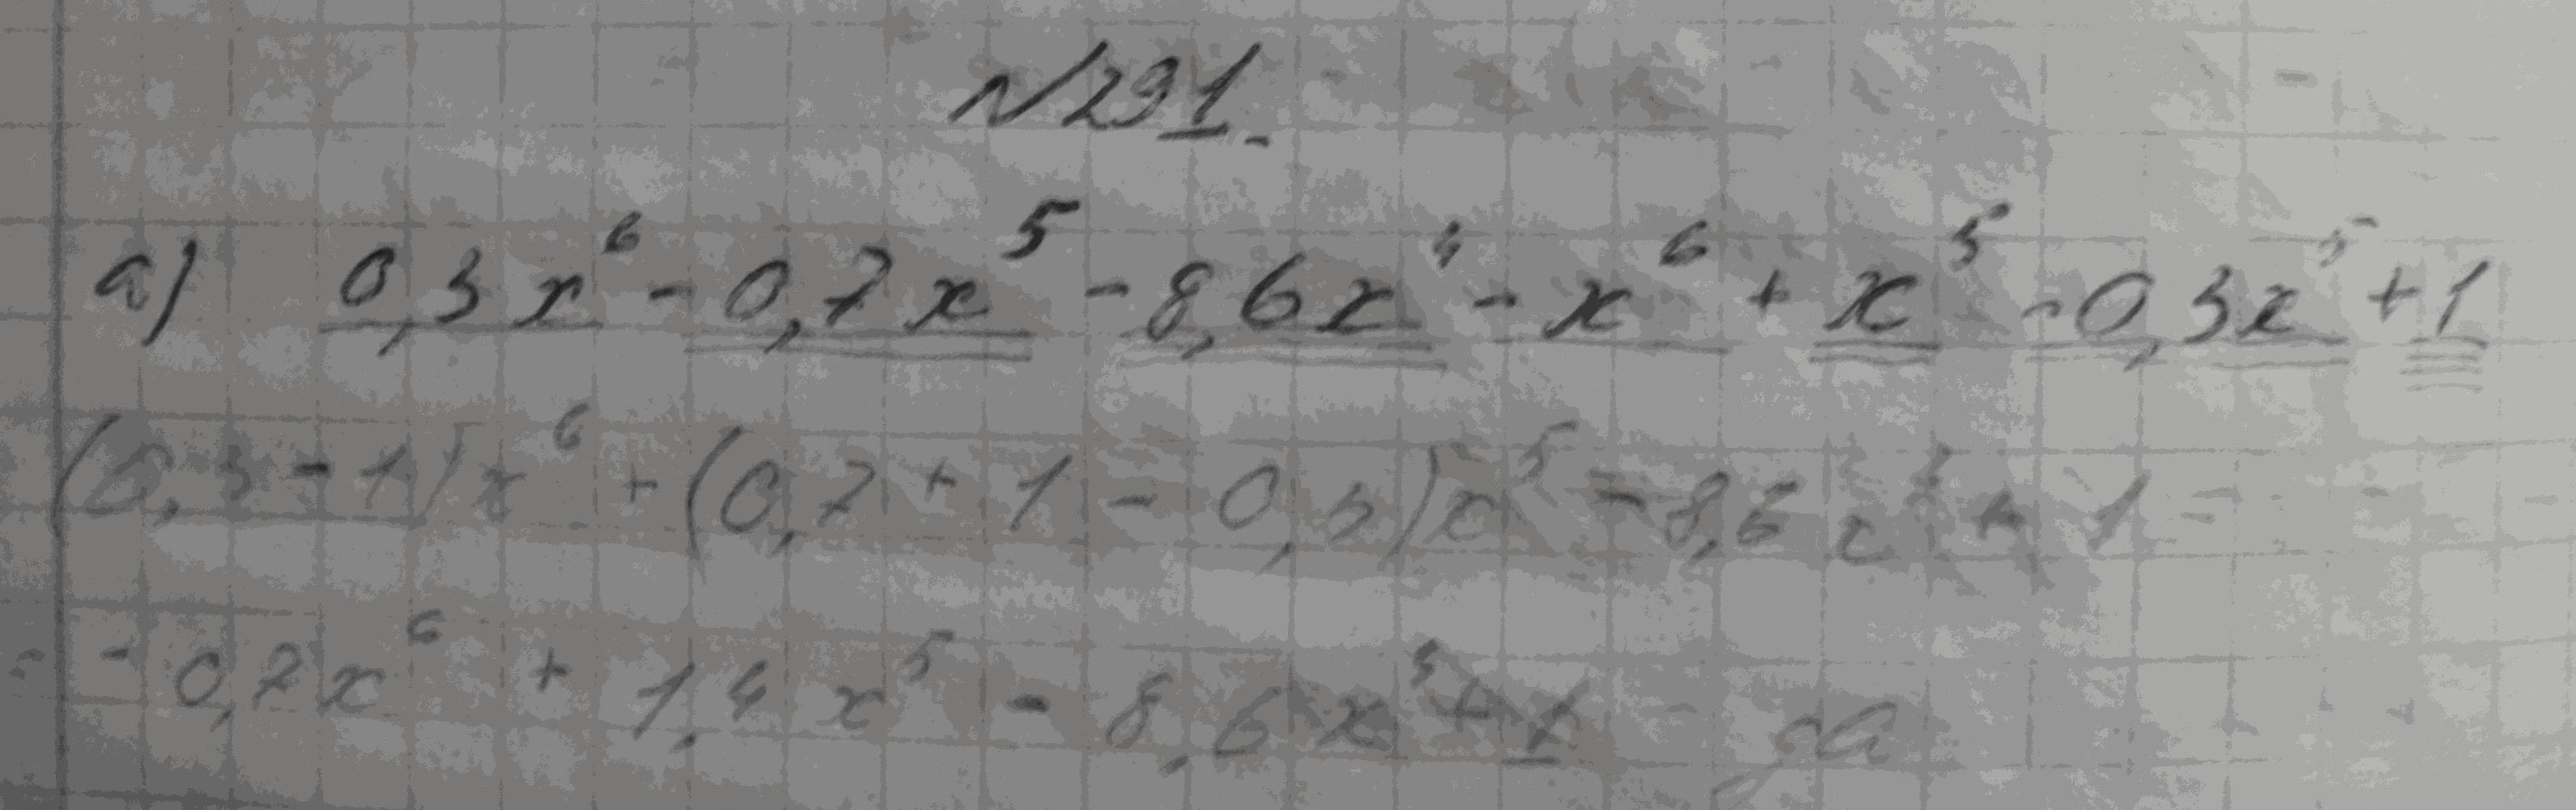 №231.
а) 0,3x⁶ - 0,7x⁵ - 8,6x⁴ - x⁶ + x⁵ - 0,3x⁵ + 1
(0,3 - 1)x⁶ + (0,7 + 1 - 0,3)x⁵ - 8,6x⁴ + 1 =
= - 0,7x⁶ + 1,4x⁵ - 8,6x⁴ + 1